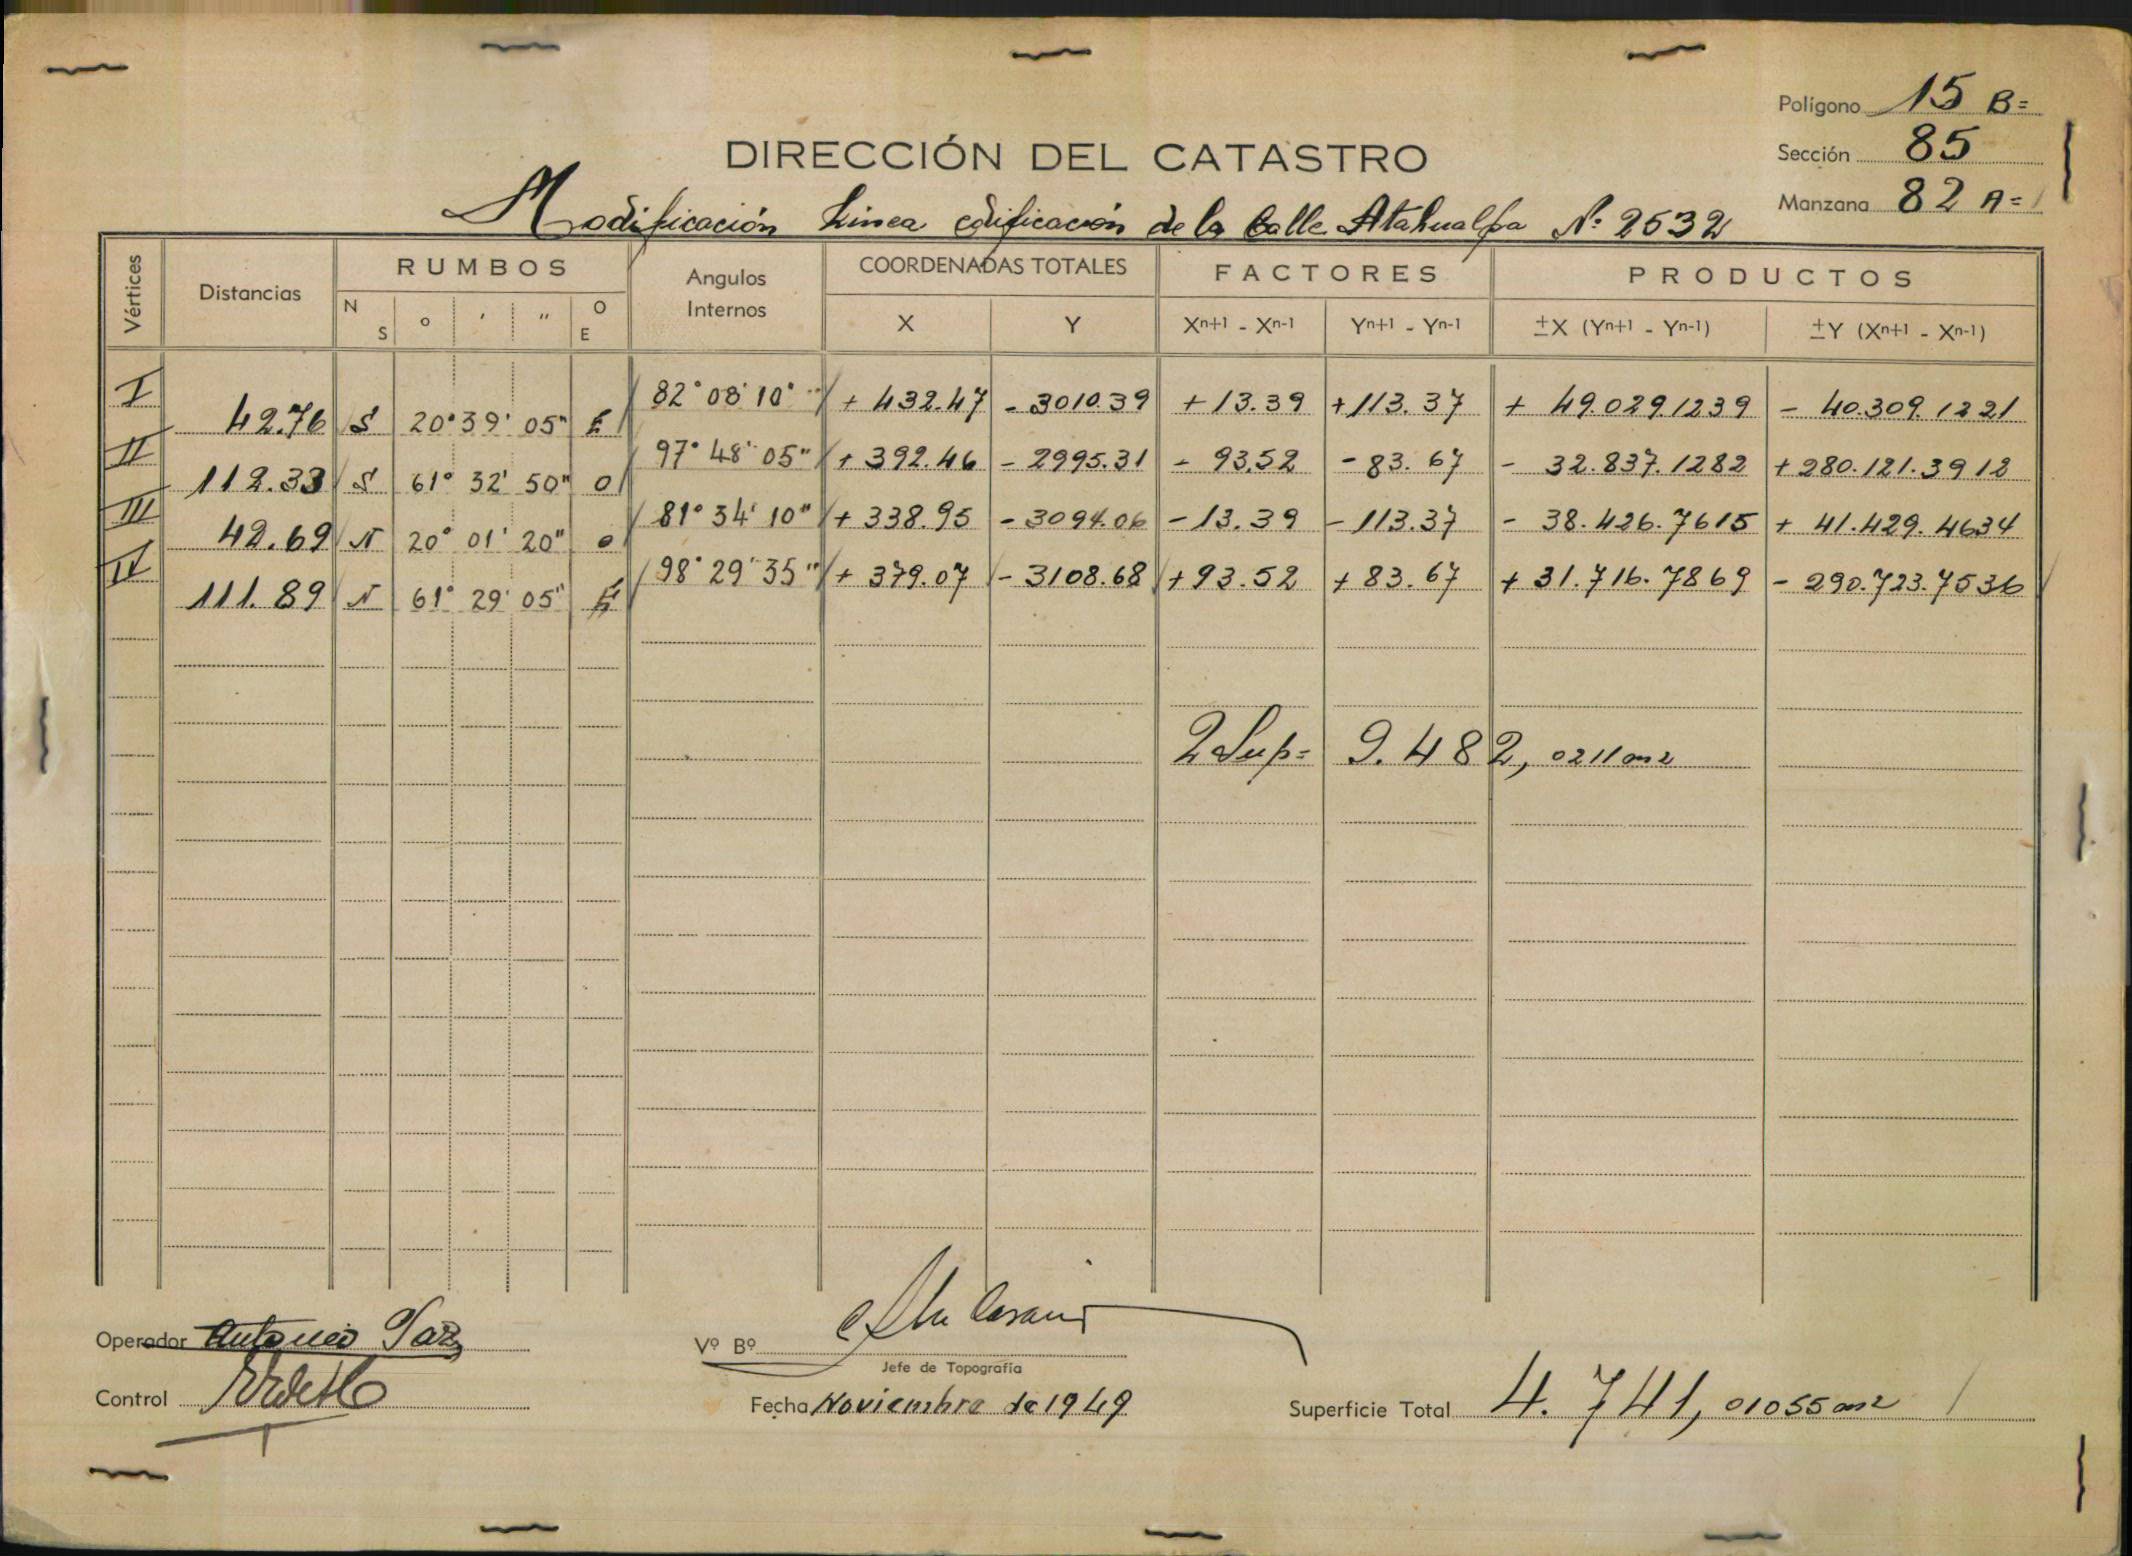 Polígono 15 B=
Sección 85
Manzana 82 A=
DIRECCIÓN DEL CATASTRO
Modificación Linea edificación de la Calle Atahualpa Nº 2532
Vértices Distancias RUMBOS Angulos Internos COORDENADAS TOTALES FACTORES PRODUCTOS
N S o ' " O E X Y Xn+1 - Xn-1 Yn+1 - Yn-1 ±X (Yn+1 - Yn-1) ±Y (Xn+1 - Xn-1)
I 82° 08' 10" + 432.47 - 3010.39 + 13.39 +113.37 + 49.029.1239 - 40.309.1221
42.76 S 20° 39' 05" E
II 97° 48' 05" + 392.46 - 2995.31 - 93.52 - 83.67 - 32.837.1282 + 280.121.3912
112.33 S 61° 32' 50" O
III 81° 34' 10" + 338.95 - 3094.06 - 13.39 - 113.37 - 38.426.7615 + 41.429.4634
42.69 N 20° 01' 20" O
IV 98° 29' 35" + 379.07 - 3108.68 + 93.52 + 83.67 + 31.716.7869 - 290.723.7536
111.89 N 61° 29' 05" E
2 Sup= 9.482,0211 m2
Operador Antonio Paz
Vº Bº
Jefe de Topografía
Control
Fecha Noviembre de 1949
Superficie Total 4.741,01055 m2